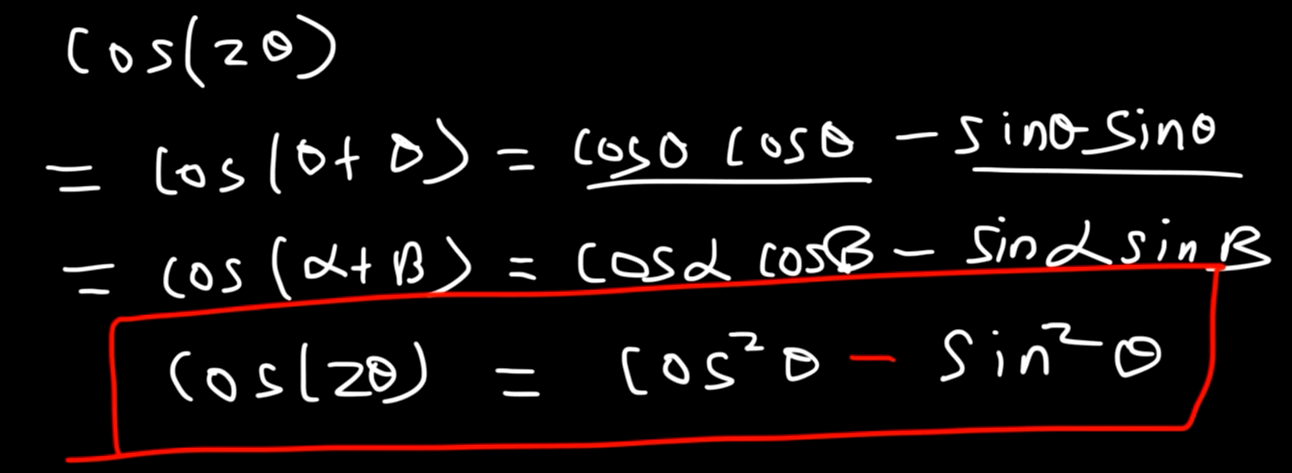 cos(2θ)
= cos(θ+θ) = cosθ cosθ - sinθ sinθ
= cos(α+β) = cosα cosβ - sinα sinβ
cos(2θ) = cos²θ - sin²θ